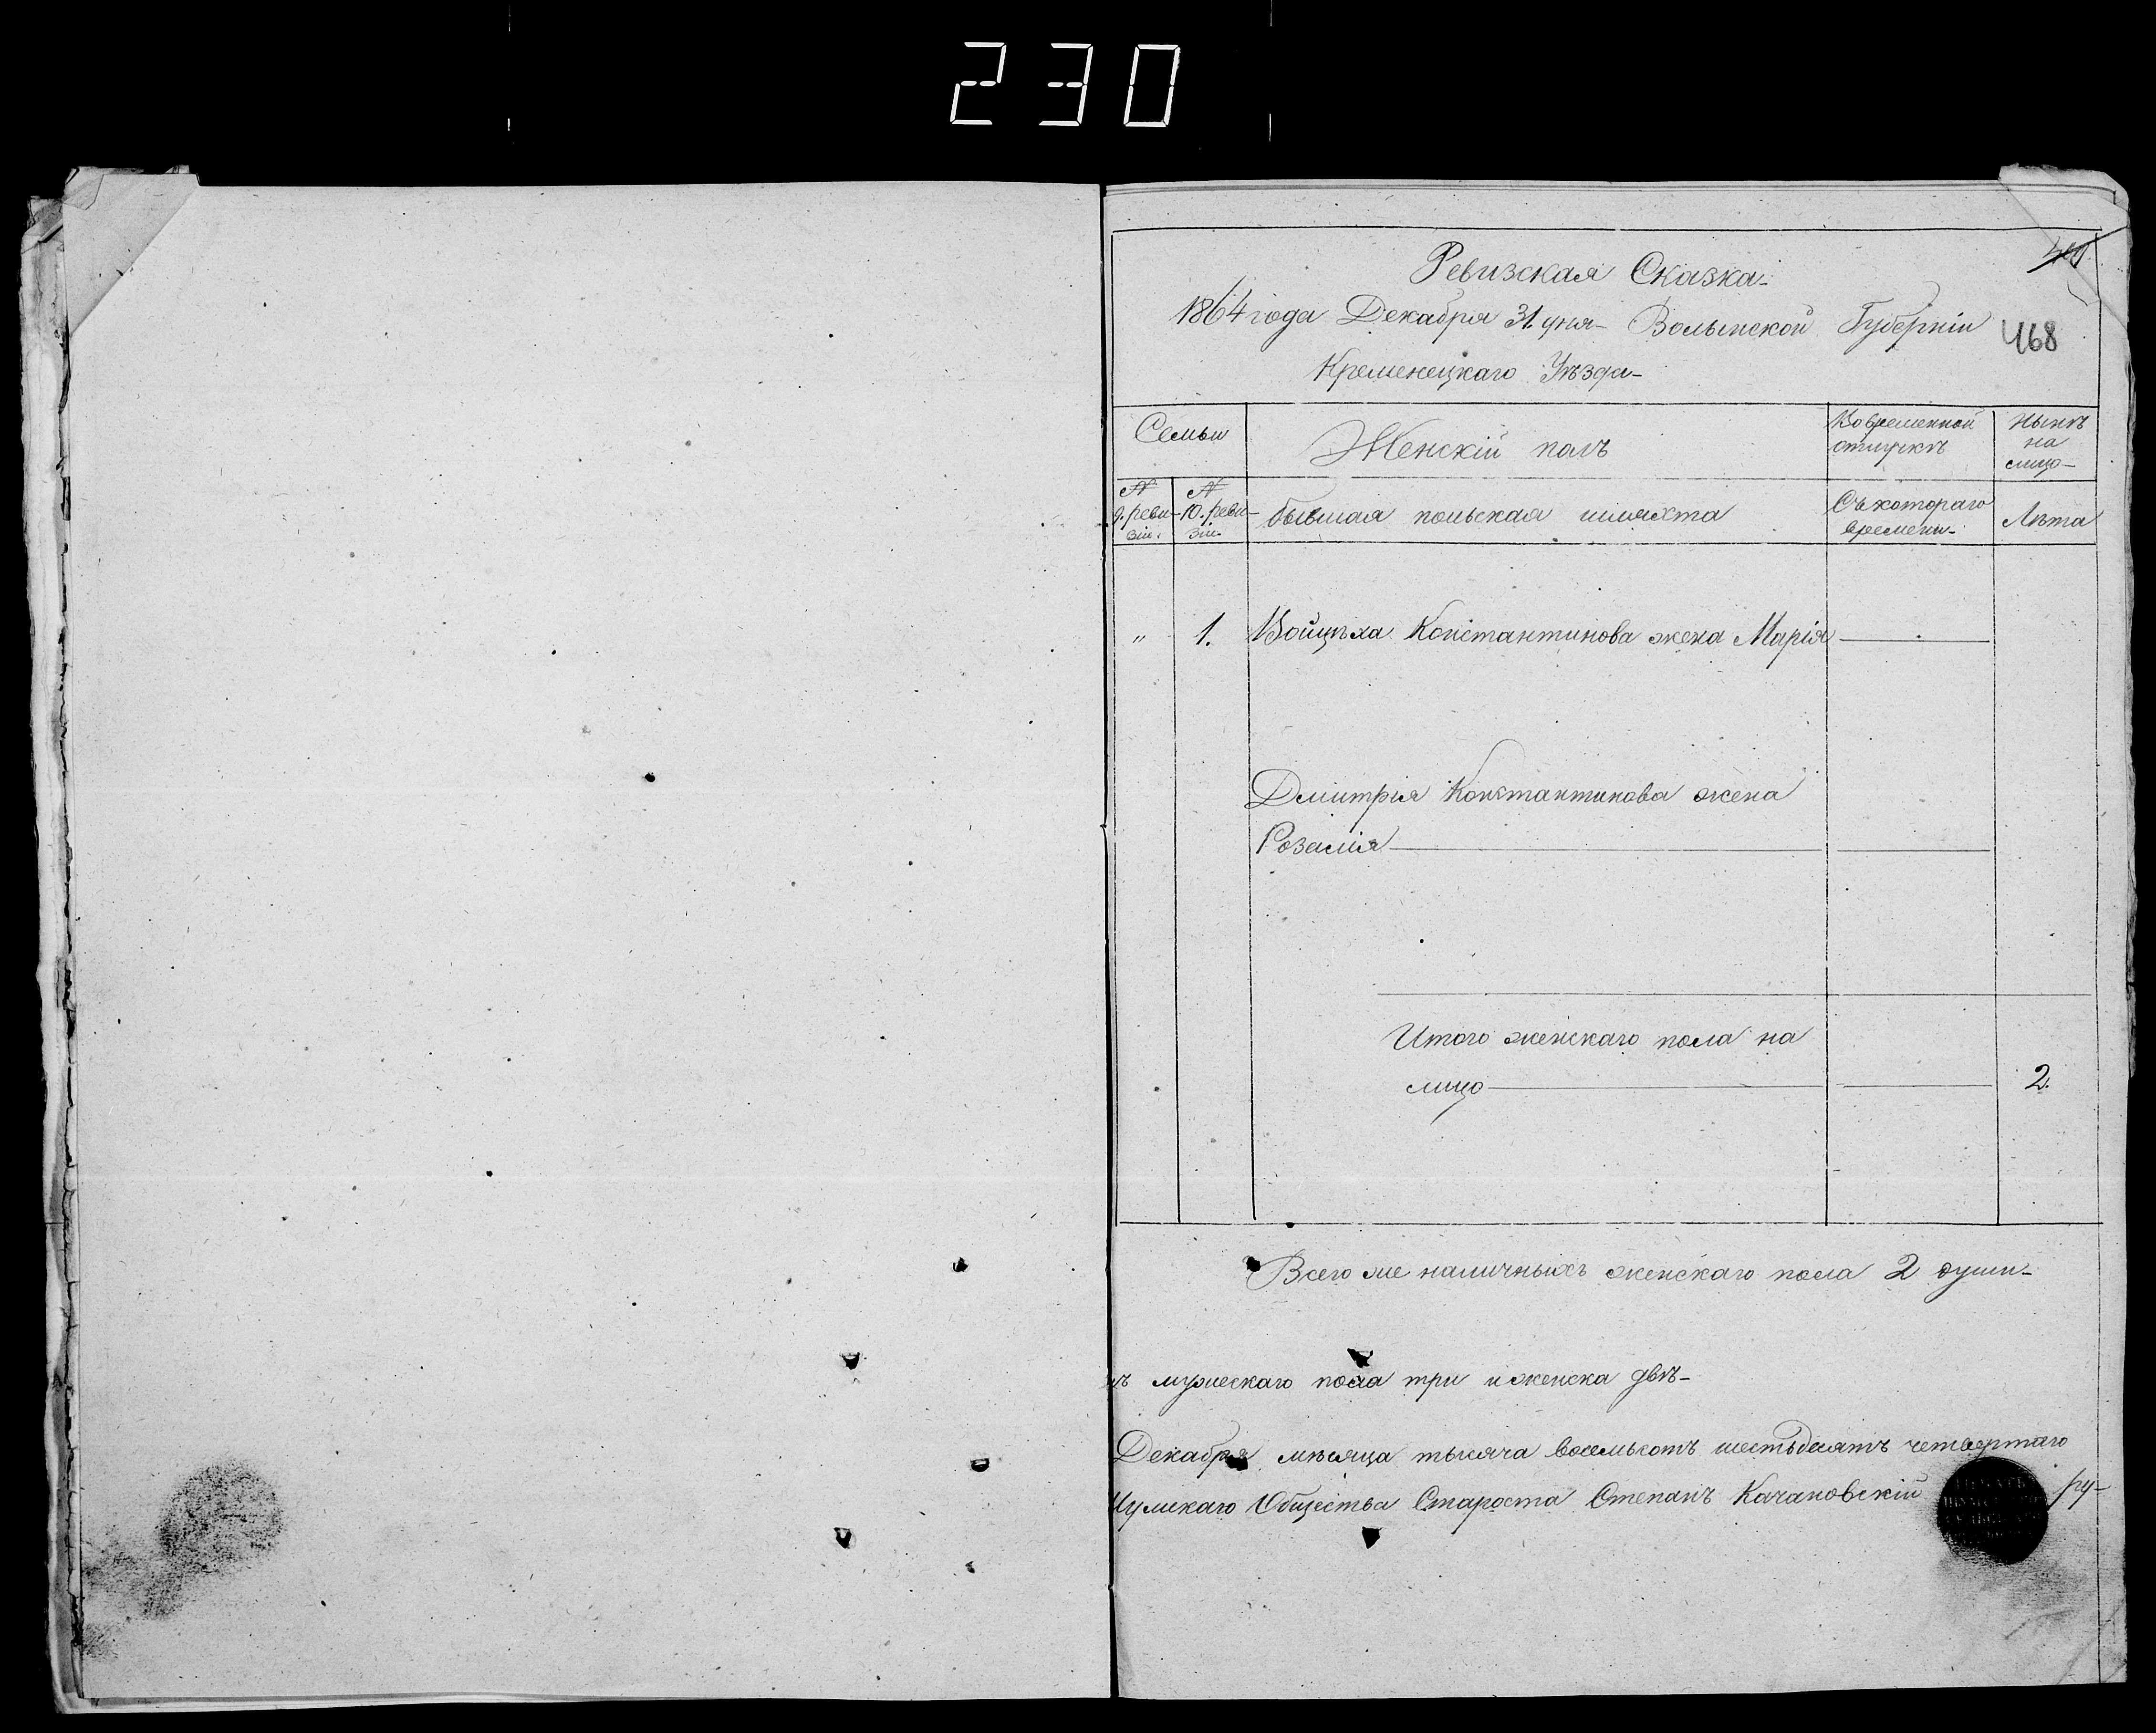 230
Ревизская Сказка-
1864 года Декабря 31. дня- Волынской Губерніи
468
Кременецкаго Уѣзда-
Семьи
Женскій полъ
Во временной
отлучкѣ
Нынѣ
на
лицо-
№
9. реви-
зіи.
№
10. реви-
зіи.
бывшая польская шляхта
Съ котораго
времени-
Лѣта
" 1. Войцѣха Константинова жена Марія
Дмитрія Константинова жена
Розалія
Итого женскаго пола на
лицо 2.
Всего же наличныхъ женскаго пола 2 души-
ъ мужескаго пола три и женска двѣ-
Декабря мѣсяца тысяча восемьсотъ шестьдесятъ четвертаго
Шумскаго Общества Староста Степанъ Качановскій ру-